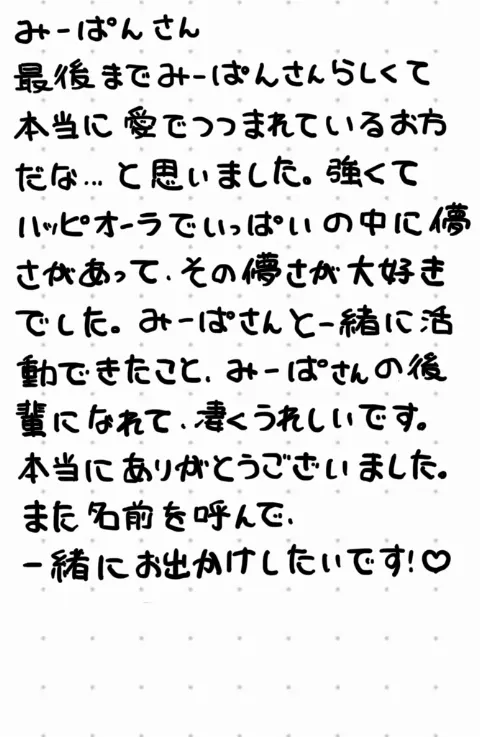 みーぱんさん
最後までみーぱんさんらしくて
本当に愛でつつまれているお方
だな...と思いました。強くて
ハッピオーラでいっぱいの中に儚
さがあって、その儚さが大好き
でした。みーぱさんと一緒に活
動できたこと、みーぱさんの後
輩になれて、凄くうれしいです。
本当にありがとうございました。
また名前を呼んで、
一緒にお出かけしたいです!♡